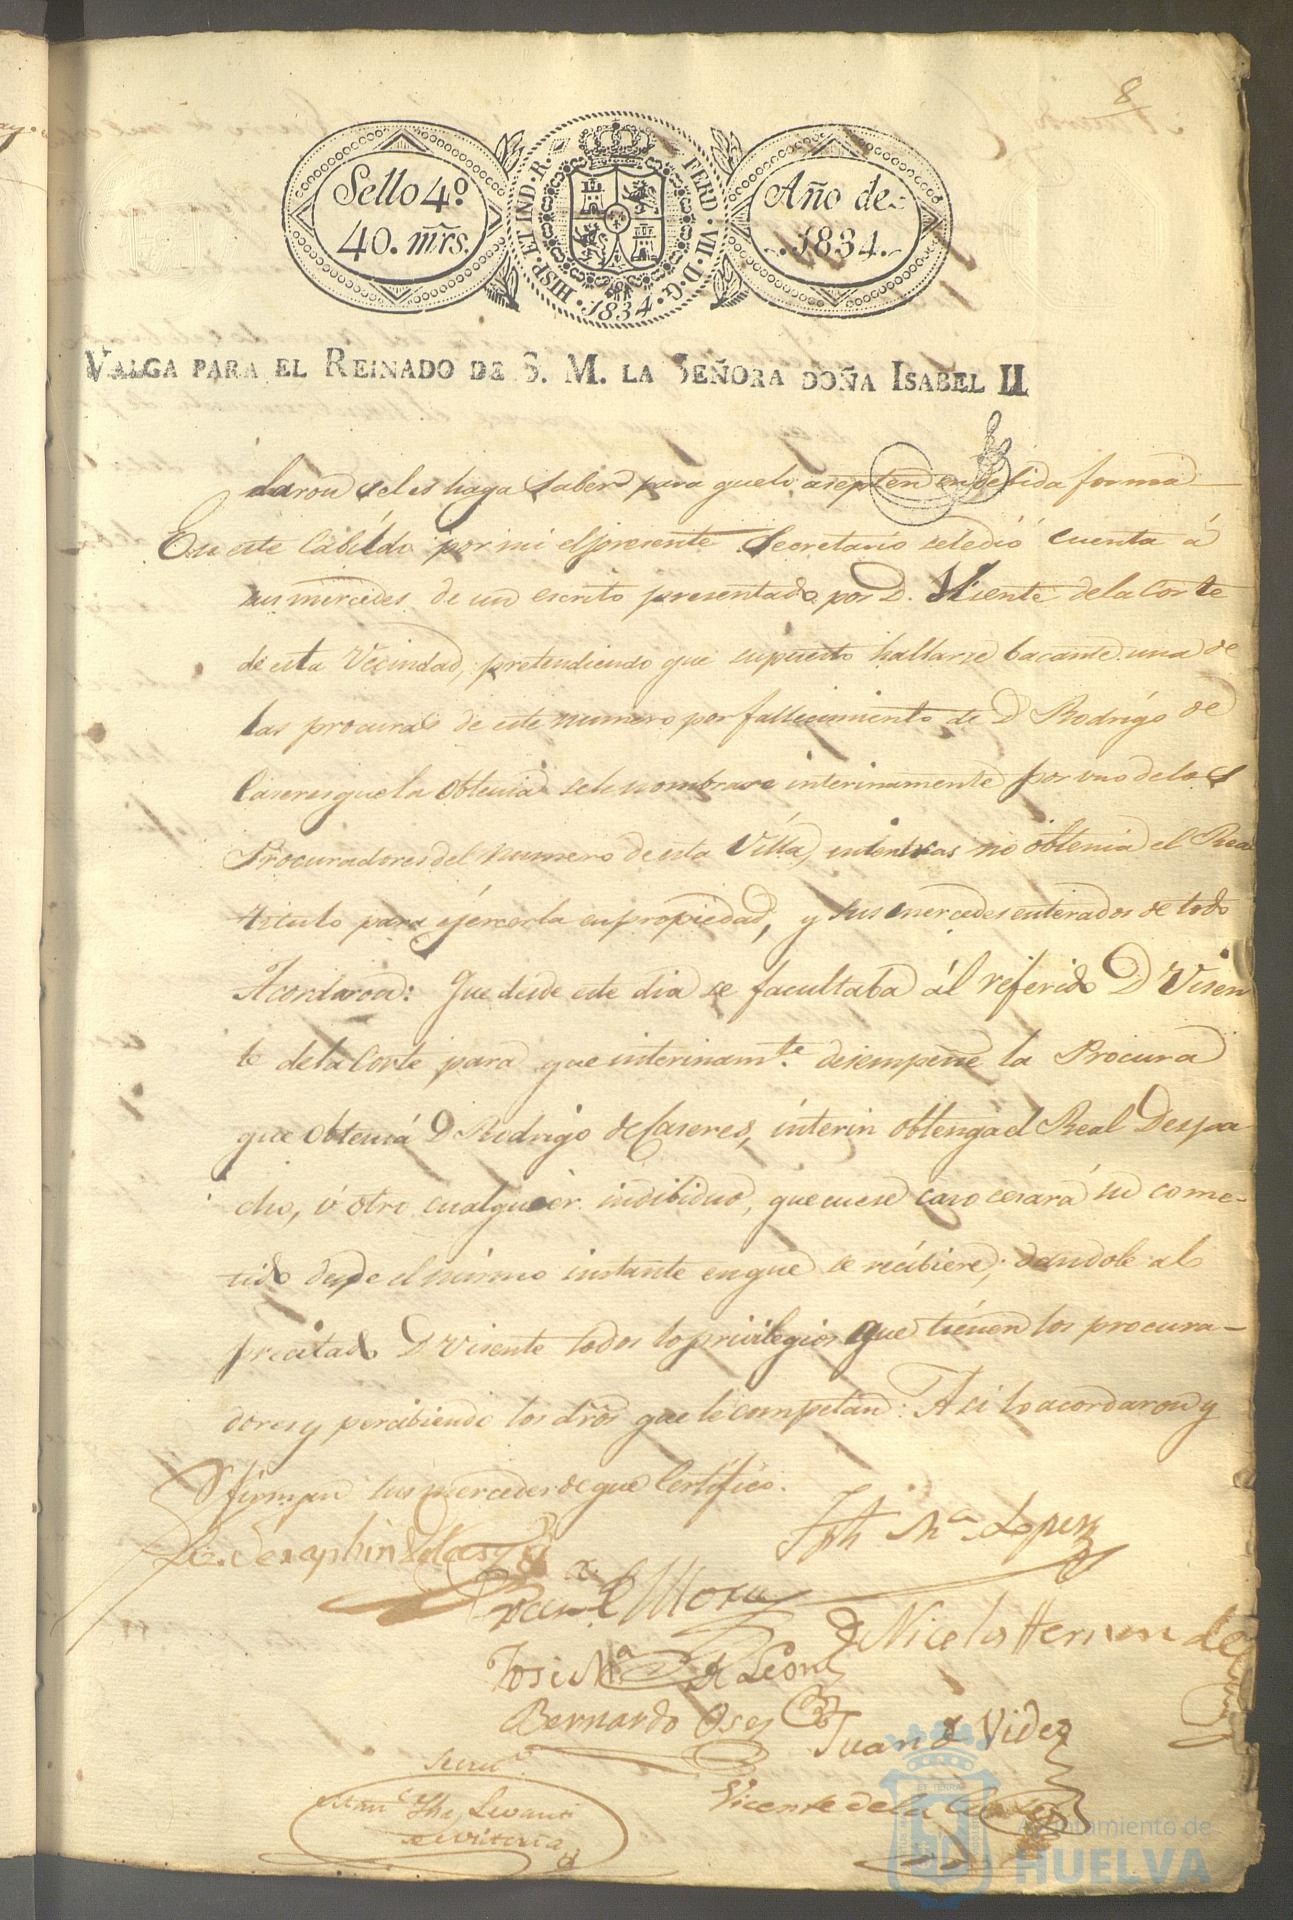 8
Sello 4º
40. mrs.
HISP. ET IND. R. FERD. VII. D. G. 1834.
Año de
1834.
VALGA PARA EL REINADO DE S. M. LA SEÑORA DOÑA ISABEL II
daron seles haga saber para quelo asepten en debida forma
En este Cabildo por mi elpresente Secretario seledió cuenta á
sus mercedes de un escrito presentado por D. Visente delaCorte
de esta Vecindad, pretendiendo que supuesto hallarse bacante una de
las procuras de este numero por fallecimiento de D Rodrigo de
Caseres que la obtenia sele nombrase interinamente por uno delos
Procuradores del numero de esta Villa, interitras no obtenia el Real
titulo para ejercerla en propiedad, y sus mercedes enterados de todo
Acordaron: Que desde este dia se facultaba ál referido D Visen
te delaCorte para que interinamte. desempeñe la Procura
que obtenia D Rodrigo deCaseres, interin obtenga el Real Despa
cho, ú otro cualquier individuo, que en ese caso cesará su come-
tido desde el mismo instante en que se recibiere; dandole al
precitado D Visente todos lo privilegios que tienen los procura-
dores y percibiendo los dros que le competan: Asi lo acordaron y
firman sus mercedes de que Certifico.
Lic. Seraphin
Jph Ma. Lopez
Franco Mora
Nicolas Hernandez
Jose Ma. de Leon
Bernardo Oses
Juan de Vides
Vicente dela Corte
Secrio.
Ayuntamiento de
HUELVA